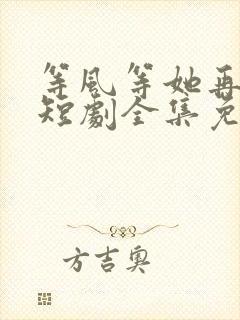 等风等她再
短劇全集免
方吉奥